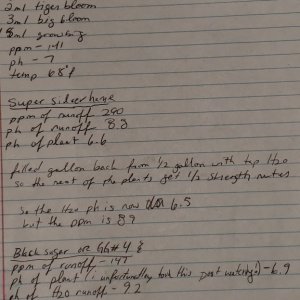 2ml tiger bloom
3ml big bloom
8ml grow big
ppm - 141
ph - 7
temp 68°f
Super silver haze
ppm of runoff 290
ph of runoff 8.8
ph of plant 6.6
filled gallon back from 1/2 gallon with tap H2O
so the rest of the plants get 1/2 strength nutes
So the H2O ph is now 6.5
but the ppm is 89
Black sugar or Gh# 4 8
ppm of runoff - 147
ph of plant (unfortunately took this post watering!) - 6.9
ph of H2O runoff - 9.2